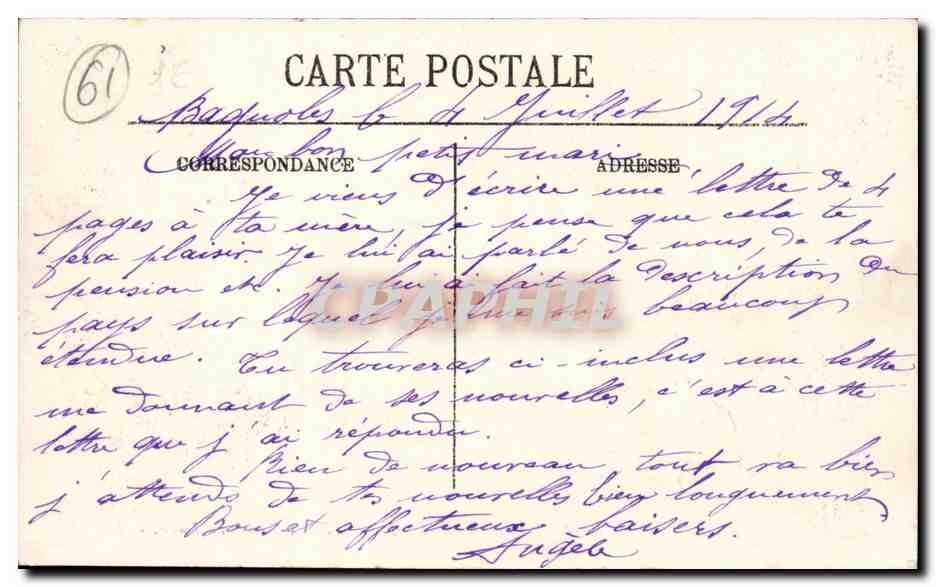 61
CARTE POSTALE
Bagnoles le 4 Juillet 1914
CORRESPONDANCE ADRESSE
Mon bon petit mari
Je viens d'écrire une lettre de 4
pages à ta mère, je pense que cela te
fera plaisir. Je lui ai parlé de nous, de la
pension etc. Je lui ai fait la description du
pays sur lequel je me suis beaucoup
étendue. Tu trouveras ci-inclus une lettre
me donnant de ses nouvelles, c'est à cette
lettre que j'ai répondu.
Rien de nouveau, tout va bien
j'attends de tes nouvelles bien longuement
Bons et affectueux baisers.
Angèle
CPAPHIL